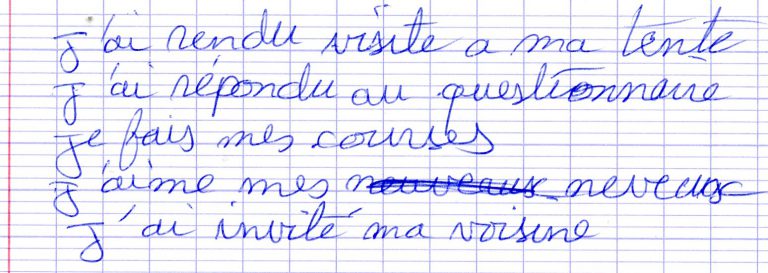 J'ai rendu visite a ma tente
J'ai répondu au questionnaire
Je fais mes courses
J'aime mes neuveaux neveux
J'ai invité ma voisine